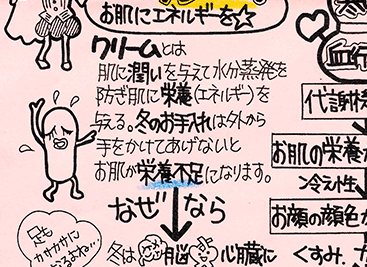 お肌にエネルギーを☆
クリームとは
肌に潤いを与えて水分蒸発を
防ぎ肌に栄養(エネルギー)を
与える。冬のお手入れは外から
手をかけてあげないと
お肌が栄養不足になります。
なぜなら
冬は 脳 心臓に
足も
カサカサに
なるよね…
代謝
お肌の栄養が
冷え性
お顔の顔色が
くすみ、カ